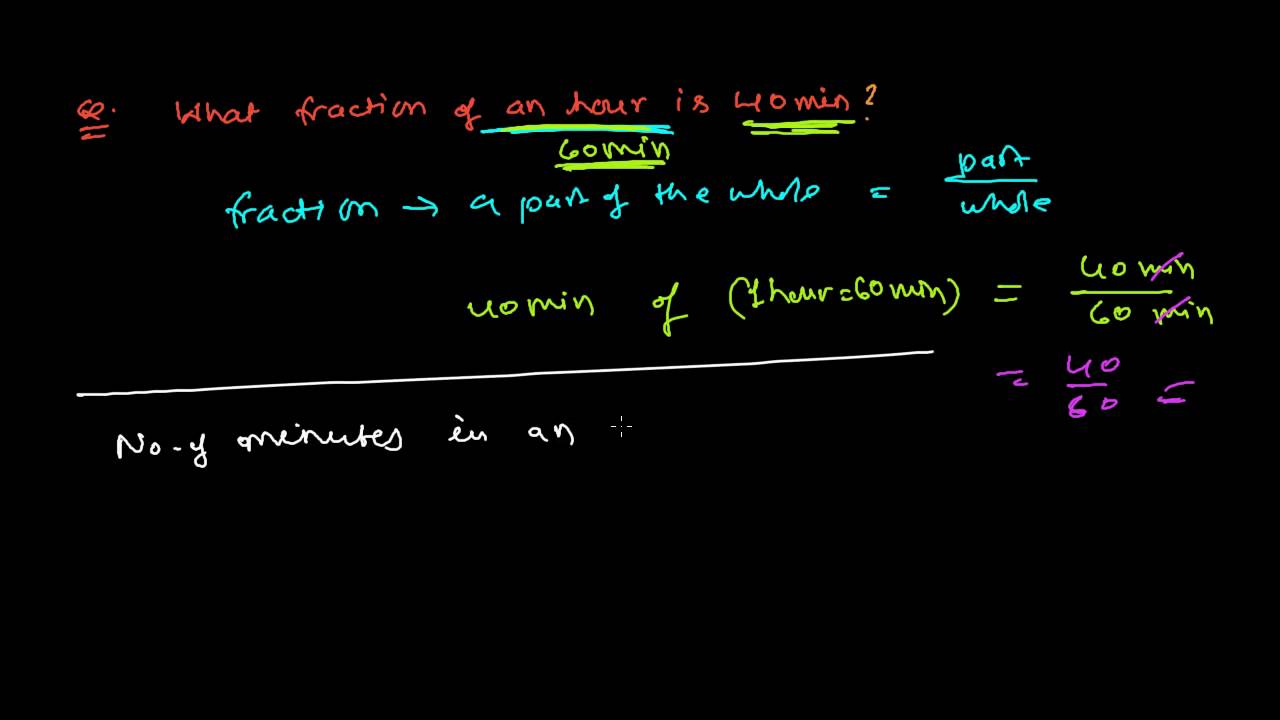 Q. What fraction of an hour is 40 min ?
60 min
fraction → a part of the whole = part/whole
40 min of (1 hour = 60 min) = 40 min/60 min
= 40/60 =
No. of minutes in an